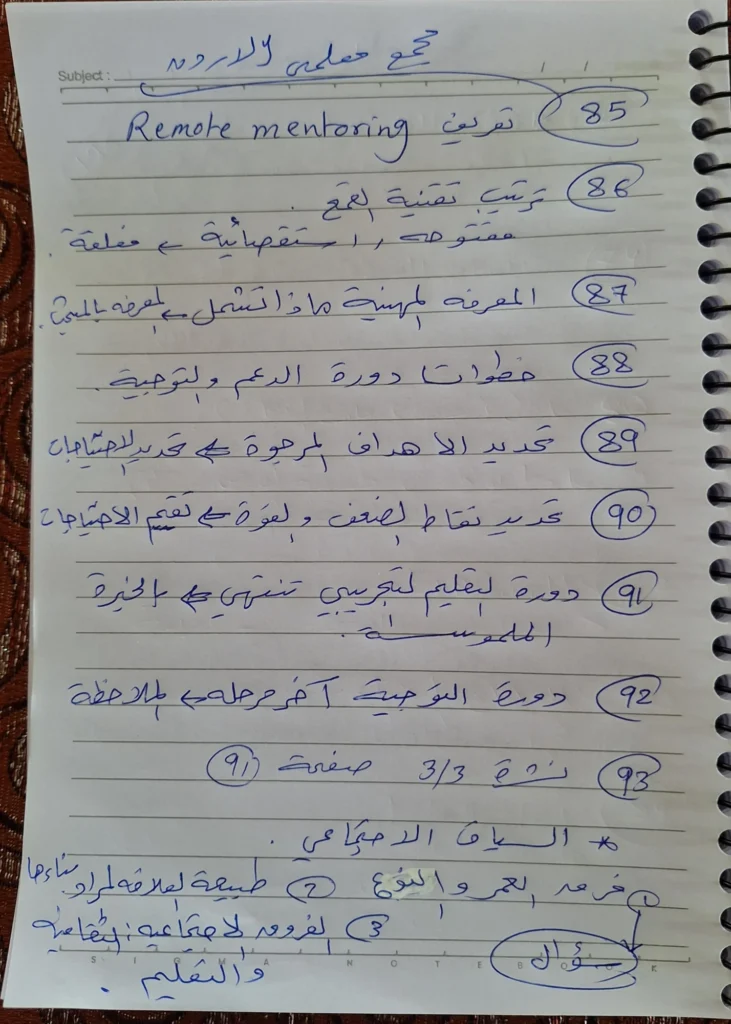 تجمع معلمي الاردن
Subject :
85 تعريف Remote mentoring
86 ترتيب تقنية القمع .
مفتوحه , استقصائية ← مغلقة .
87 المعرفه المهنية ماذا تشمل ← المعرفه بالمبحث .
88 خطوات دورة الدعم والتوجية .
89 تحديد الاهداف المرجوة ← تحديد الاحتياجات
90 تحديد نقاط الضعف والقوة ← تقيم الاحتياجات
91 دورة التعليم التجريبي تنتهي ← الخبرة
الملموسة .
92 دورة التوجية آخر مرحله ← الملاحظة
93 نشرة 3/3 صفحة 91
* السياق الاجتماعي .
1 فرق العمر والنوع 2 طبيعة العلاقه المراد بناءها
3 الفروق الاجتماعيه : الثقافيه
سؤال
والتعليم .
S I G M A N O T E B O O K